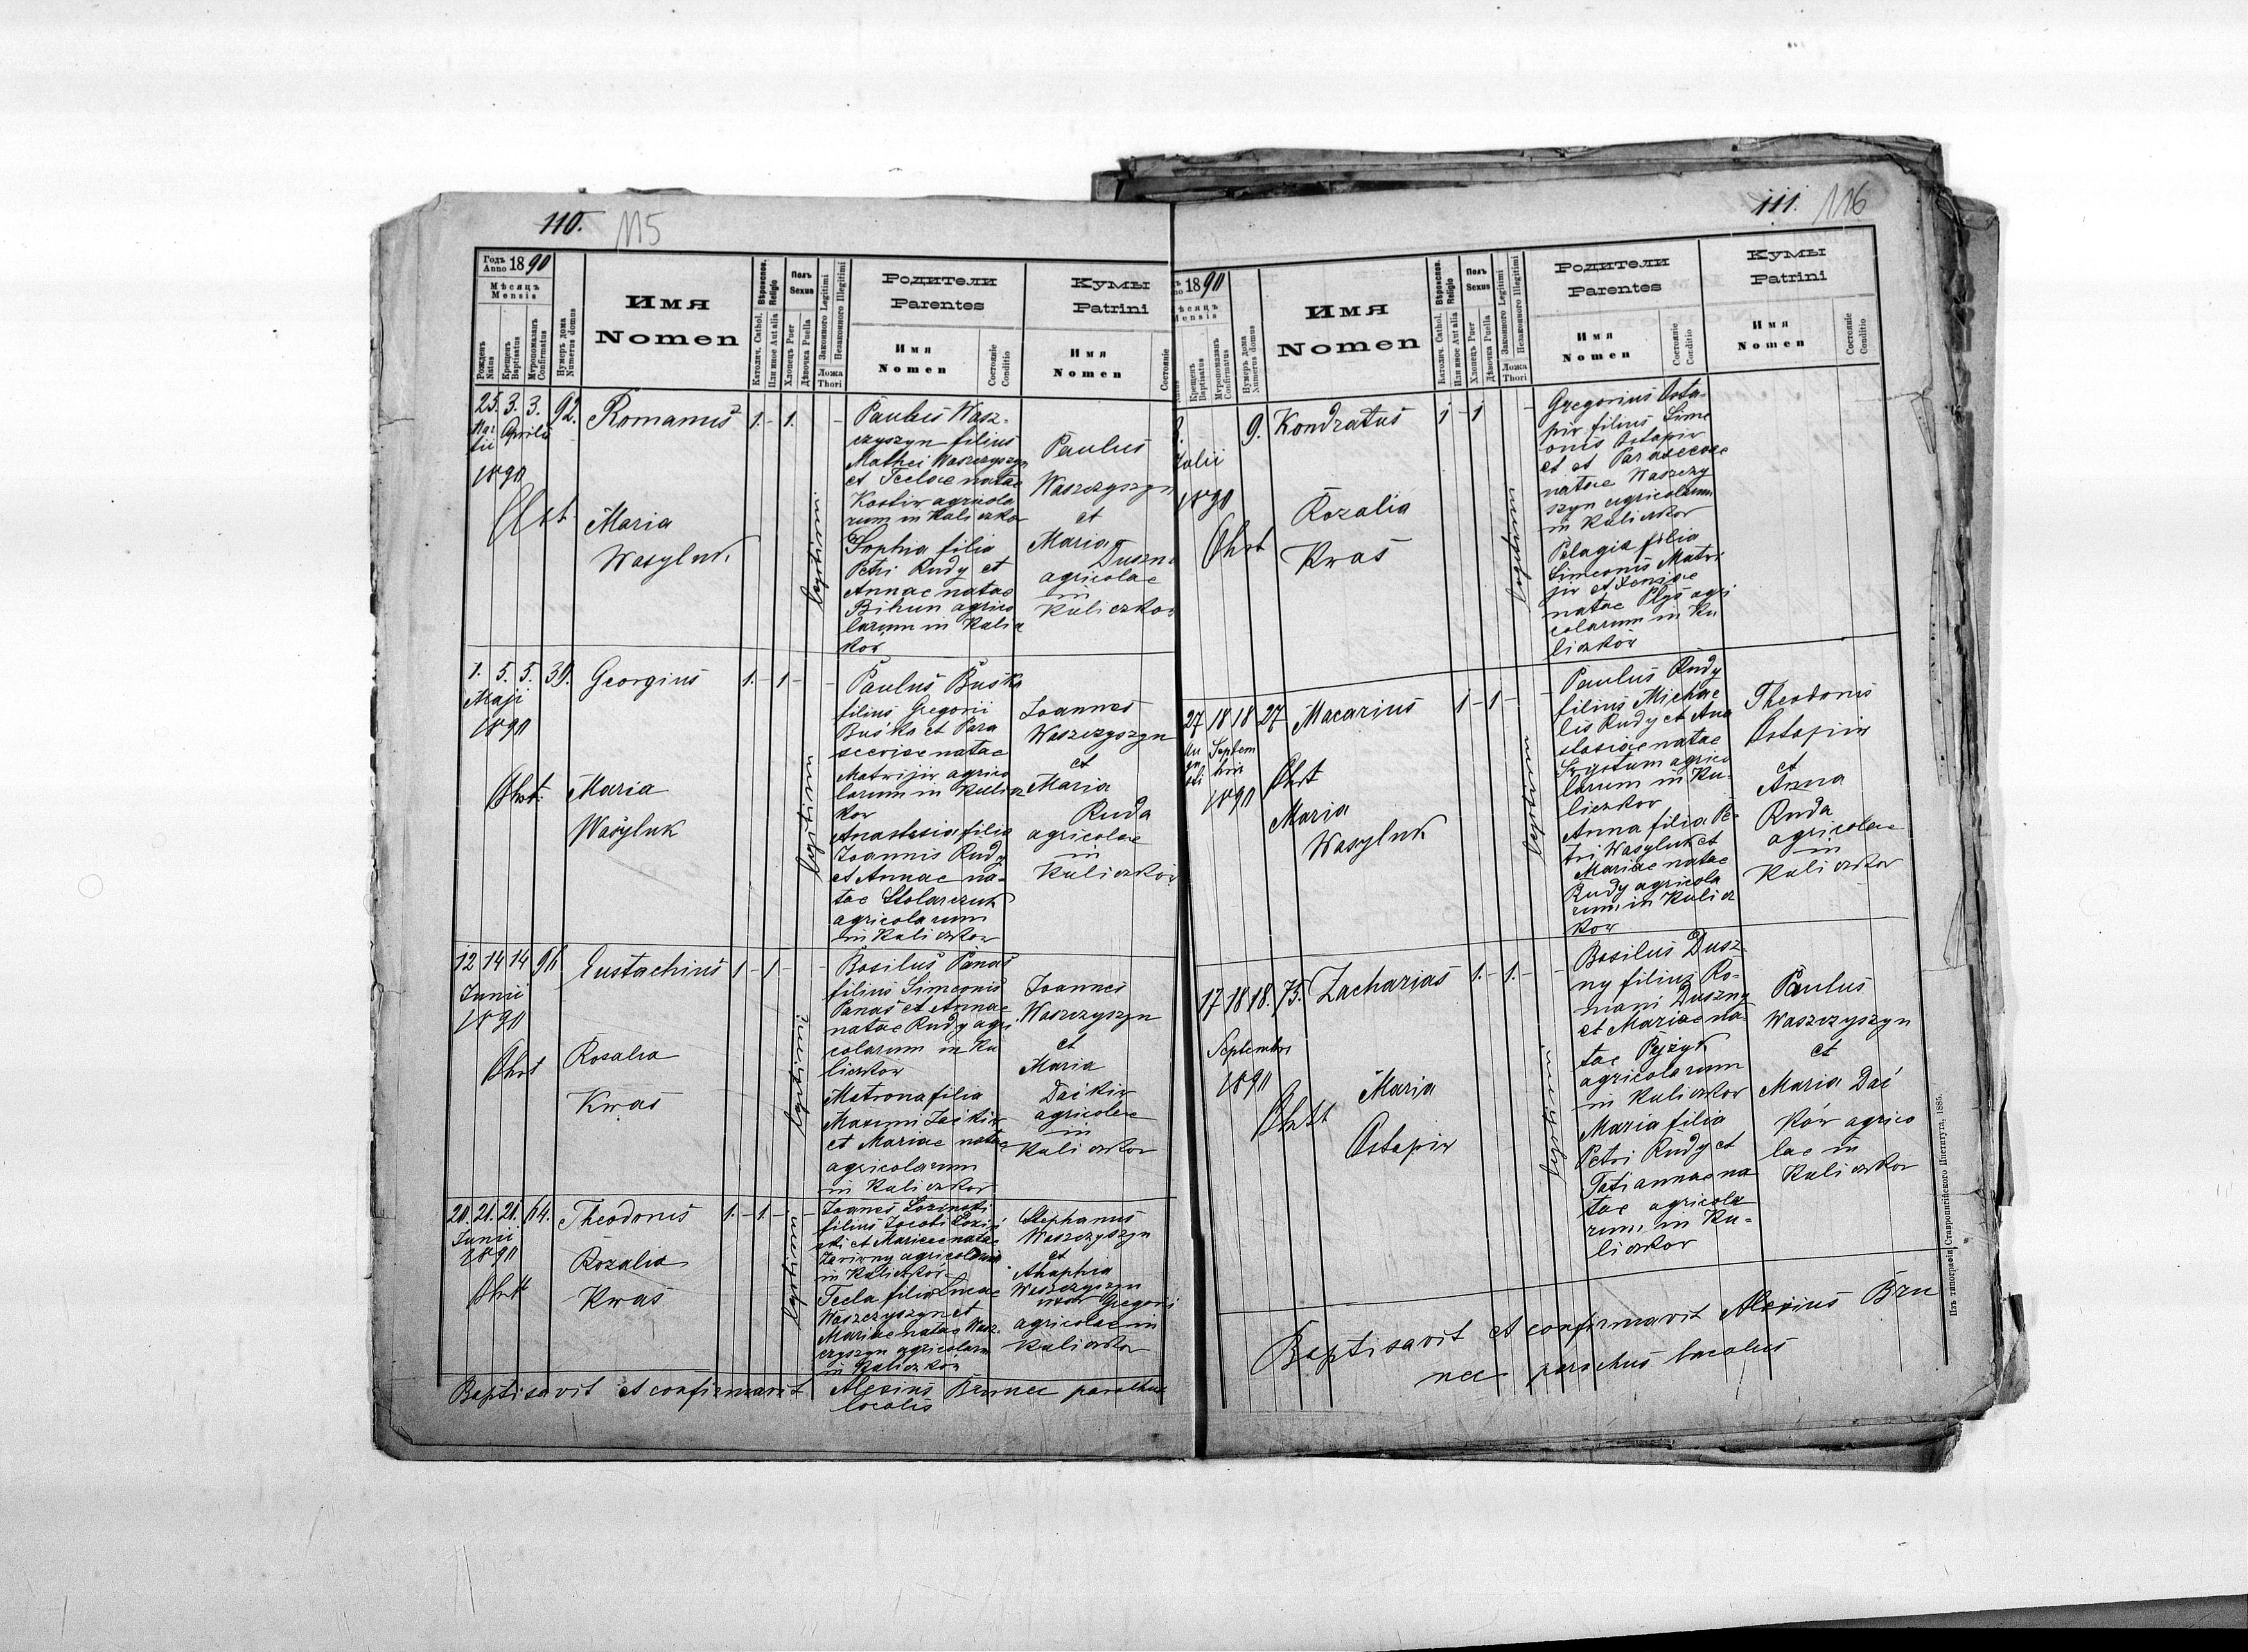 110. 115
Годъ Anno 1890
Мѣсяцъ
Mensis
Рожденъ Natus
Крещенъ Baptisatus
Мѵропомазанъ Confirmatus
Нумеръ дома Numerus domus
Имя
Nomen
Вѣроиспов. Religio
Католич. Cathol.
Или иное Aut alia
Полъ
Sexus
Хлопецъ Puer
Дѣвочка Puella
Законного Legitimi
Незаконного Illegitimi
Ложа
Thori
Родители
Parentes
Имя
Nomen
Состояніе
Conditio
Кумы
Patrini
Имя
Nomen
Состояніе
25. 3. 3. 92. Romanus 1. - 1. -
Mar Aprilis
tii
1890
Obst.
Maria
Wasyluk
legitimi
Paulus Wasz-
czyszyn filius
Mathei Waszczyszyn
et Teclae natae
Kostiw agricola
rum in Kuliczkow
Sophia filia
Petri Rudy et
Annae natae
Bihun agrico
larum in Kulicz
kow
Paulus
Waszczyszyn
et
Maria
Duszna
agricolae
in
Kuliczkow
1. 5. 5. 39. Georgius 1. - 1 - -
Maji
1890
Obst.
Maria
Wasyluk
legitimi
Paulus Buśko
filius Gregorii
Buśko et Para
sceviae natae
Matwijiw agrico
larum in Kulicz
kow
Anastasia filia
Joannis Rudy
et Annae na-
tae Stolarczuk
agricolarum
in Kuliczkow
Joannes
Waszczyszyn
et
Maria
Ruda
agricolae
in
Kuliczkow
12 14 14 96 Eustachius 1 - 1 - -
Junii
1890
Obst
Rosalia
Kwas
legitimi
Basilus Panas
filius Simeonis
Panas et Annae
natae Rudy agri
colarum in Ku
liczkow
Matrona filia
Maximi
et Mariae natae
agricolarum
in Kuliczkow
Joannes
Waszczyszyn
et
Maria
Daćkiw
agricolae
in
Kuliczkow
20. 21. 21. 64. Theodorus 1. - 1. - -
Junii
1890
Obst
Rozalia
Kwas
legitimi
Joannes Łozinski
filius Jacobi Łoziń
ski et Mariae natae
agricolarum
in Kuliczkow
Tecla filia Lucae
Waszczyszyn et
Mariae natae Wasz-
czyszyn agricolarum
in Kuliczkow
Stephanus
Waszczyszyn
et
Ahaphia
Waszczyszyn
uxor Gregorii
agricolae in
Kuliczkow
Baptisavit et confirmavit Alexius Brunec parochus
localis
111. 116
1890
Мѣсяцъ
Mensis
Крещенъ Baptisatus
Мѵропомазанъ Confirmatus
Нумеръ дома Numerus domus
Имя
Nomen
Вѣроиспов. Religio
Католич. Cathol.
Или иное Aut alia
Полъ
Sexus
Хлопецъ Puer
Дѣвочка Puella
Законного Legitimi
Незаконного Illegitimi
Ложа
Thori
Родители
Parentes
Имя
Nomen
Состояніе
Conditio
Кумы
Patrini
Имя
Nomen
Состояніе
Conditio
9. Kondratus 1 - 1 -
Julii
1890
Obst
Rozalia
Kwas
legitimi
Gregorius Osta-
piw filius Sime
onis Ostapiw
et et Parascevae
natae Waszczy
szyn agricolarum
in Kuliczkow
Pelagia filia
Simeonis Matwi
jiw et Xeniae
natae Plys agri
colarum in Ku
liczkow
27 18 18 27 Macarius 1 - 1 - -
Au Septem
gu bris
sti
1890
Obst
Maria
Wasyluk
legitimi
Paulus Rudy
filius Michae
lis Rudy et Ana
stasiae natae
agrico
larum in Ku-
liczkow
Anna filia Pe-
tri Wasyluk et
Mariae natae
Rudy agricola
rum in Kulicz
kow
Theodorus
Ostapiw
et
Anna
Ruda
agricolae
in
Kuliczkow
17 18 18. 75. Zacharias 1. - 1. - -
Septembris
1890
Obst
Maria
Ostapiw
legitimi
Basilus Dusz-
ny filius Ro-
mani Duszny
et Mariae na-
tae Pyżyk
agricolarum
in Kuliczkow
Maria filia
Petri Rudy et
Tatiannae na
tae agricola
rum in Ku-
liczkow
Paulus
Waszczyszyn
et
Maria Dać
ków agrico
lae in
Kuliczkow
Baptisavit et confirmavit Alexius Bru
nec parochus localis
Изъ типографіи Ставропигійского Института, 1885.